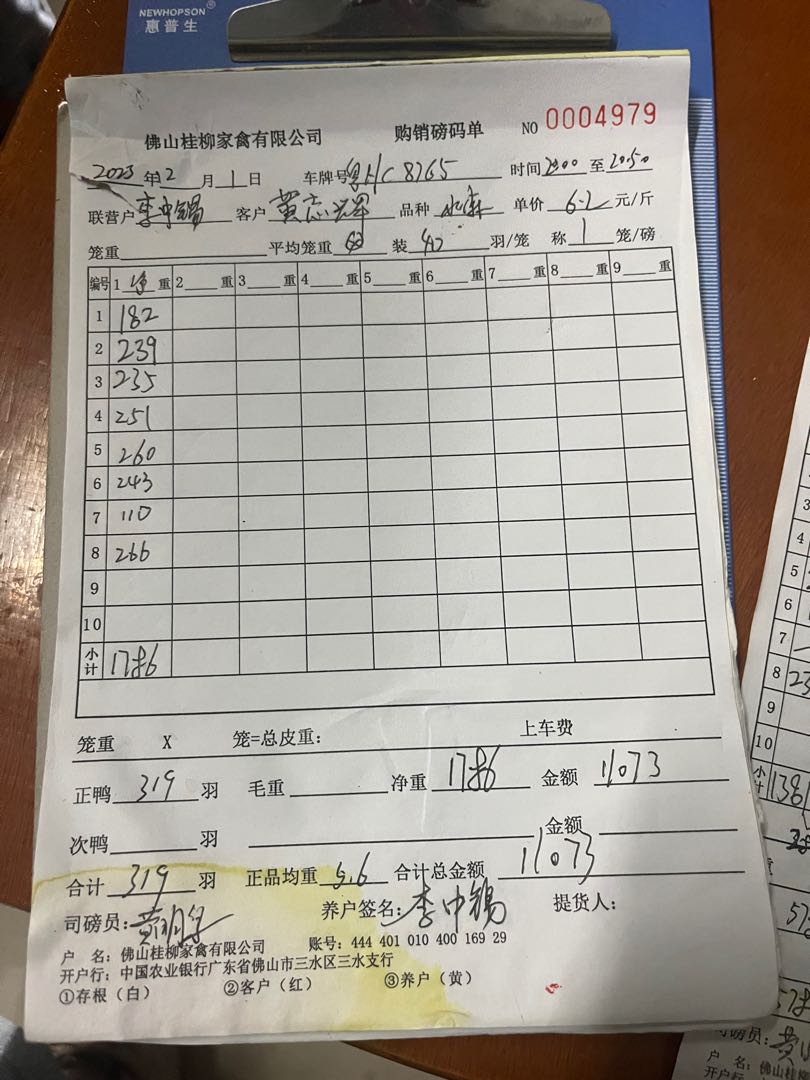 NEWHOPSON®
惠普生
佛山桂柳家禽有限公司 购销磅码单 NO 0004979
2023年12月1日 车牌号粤HC8265 时间2000至2050
联营户李中锡 客户黄志 品种 单价6.2元/斤
笼重 平均笼重 装 羽/笼 称1笼/磅
编号 1净重 2 重 3 重 4 重 5 重 6 重 7 重 8 重 9 重
1 182
2 239
3 235
4 251
5 260
6 243
7 110
8 266
9
10
小计 1786
笼重 X 笼=总皮重: 上车费
正鸭319羽 毛重 净重1786 金额11073
次鸭 羽 金额
合计319羽 正品均重5.6 合计总金额11073
司磅员:黄 养户签名:李中锡 提货人:
户 名:佛山桂柳家禽有限公司 账号:444 401 010 400 169 29
开户行:中国农业银行广东省佛山市三水区三水支行
①存根(白) ②客户(红) ③养户(黄)
3
4
5
6
7
8 23
9
10
小计 1381
司磅员:黄
户 名:佛山桂柳
开户行: